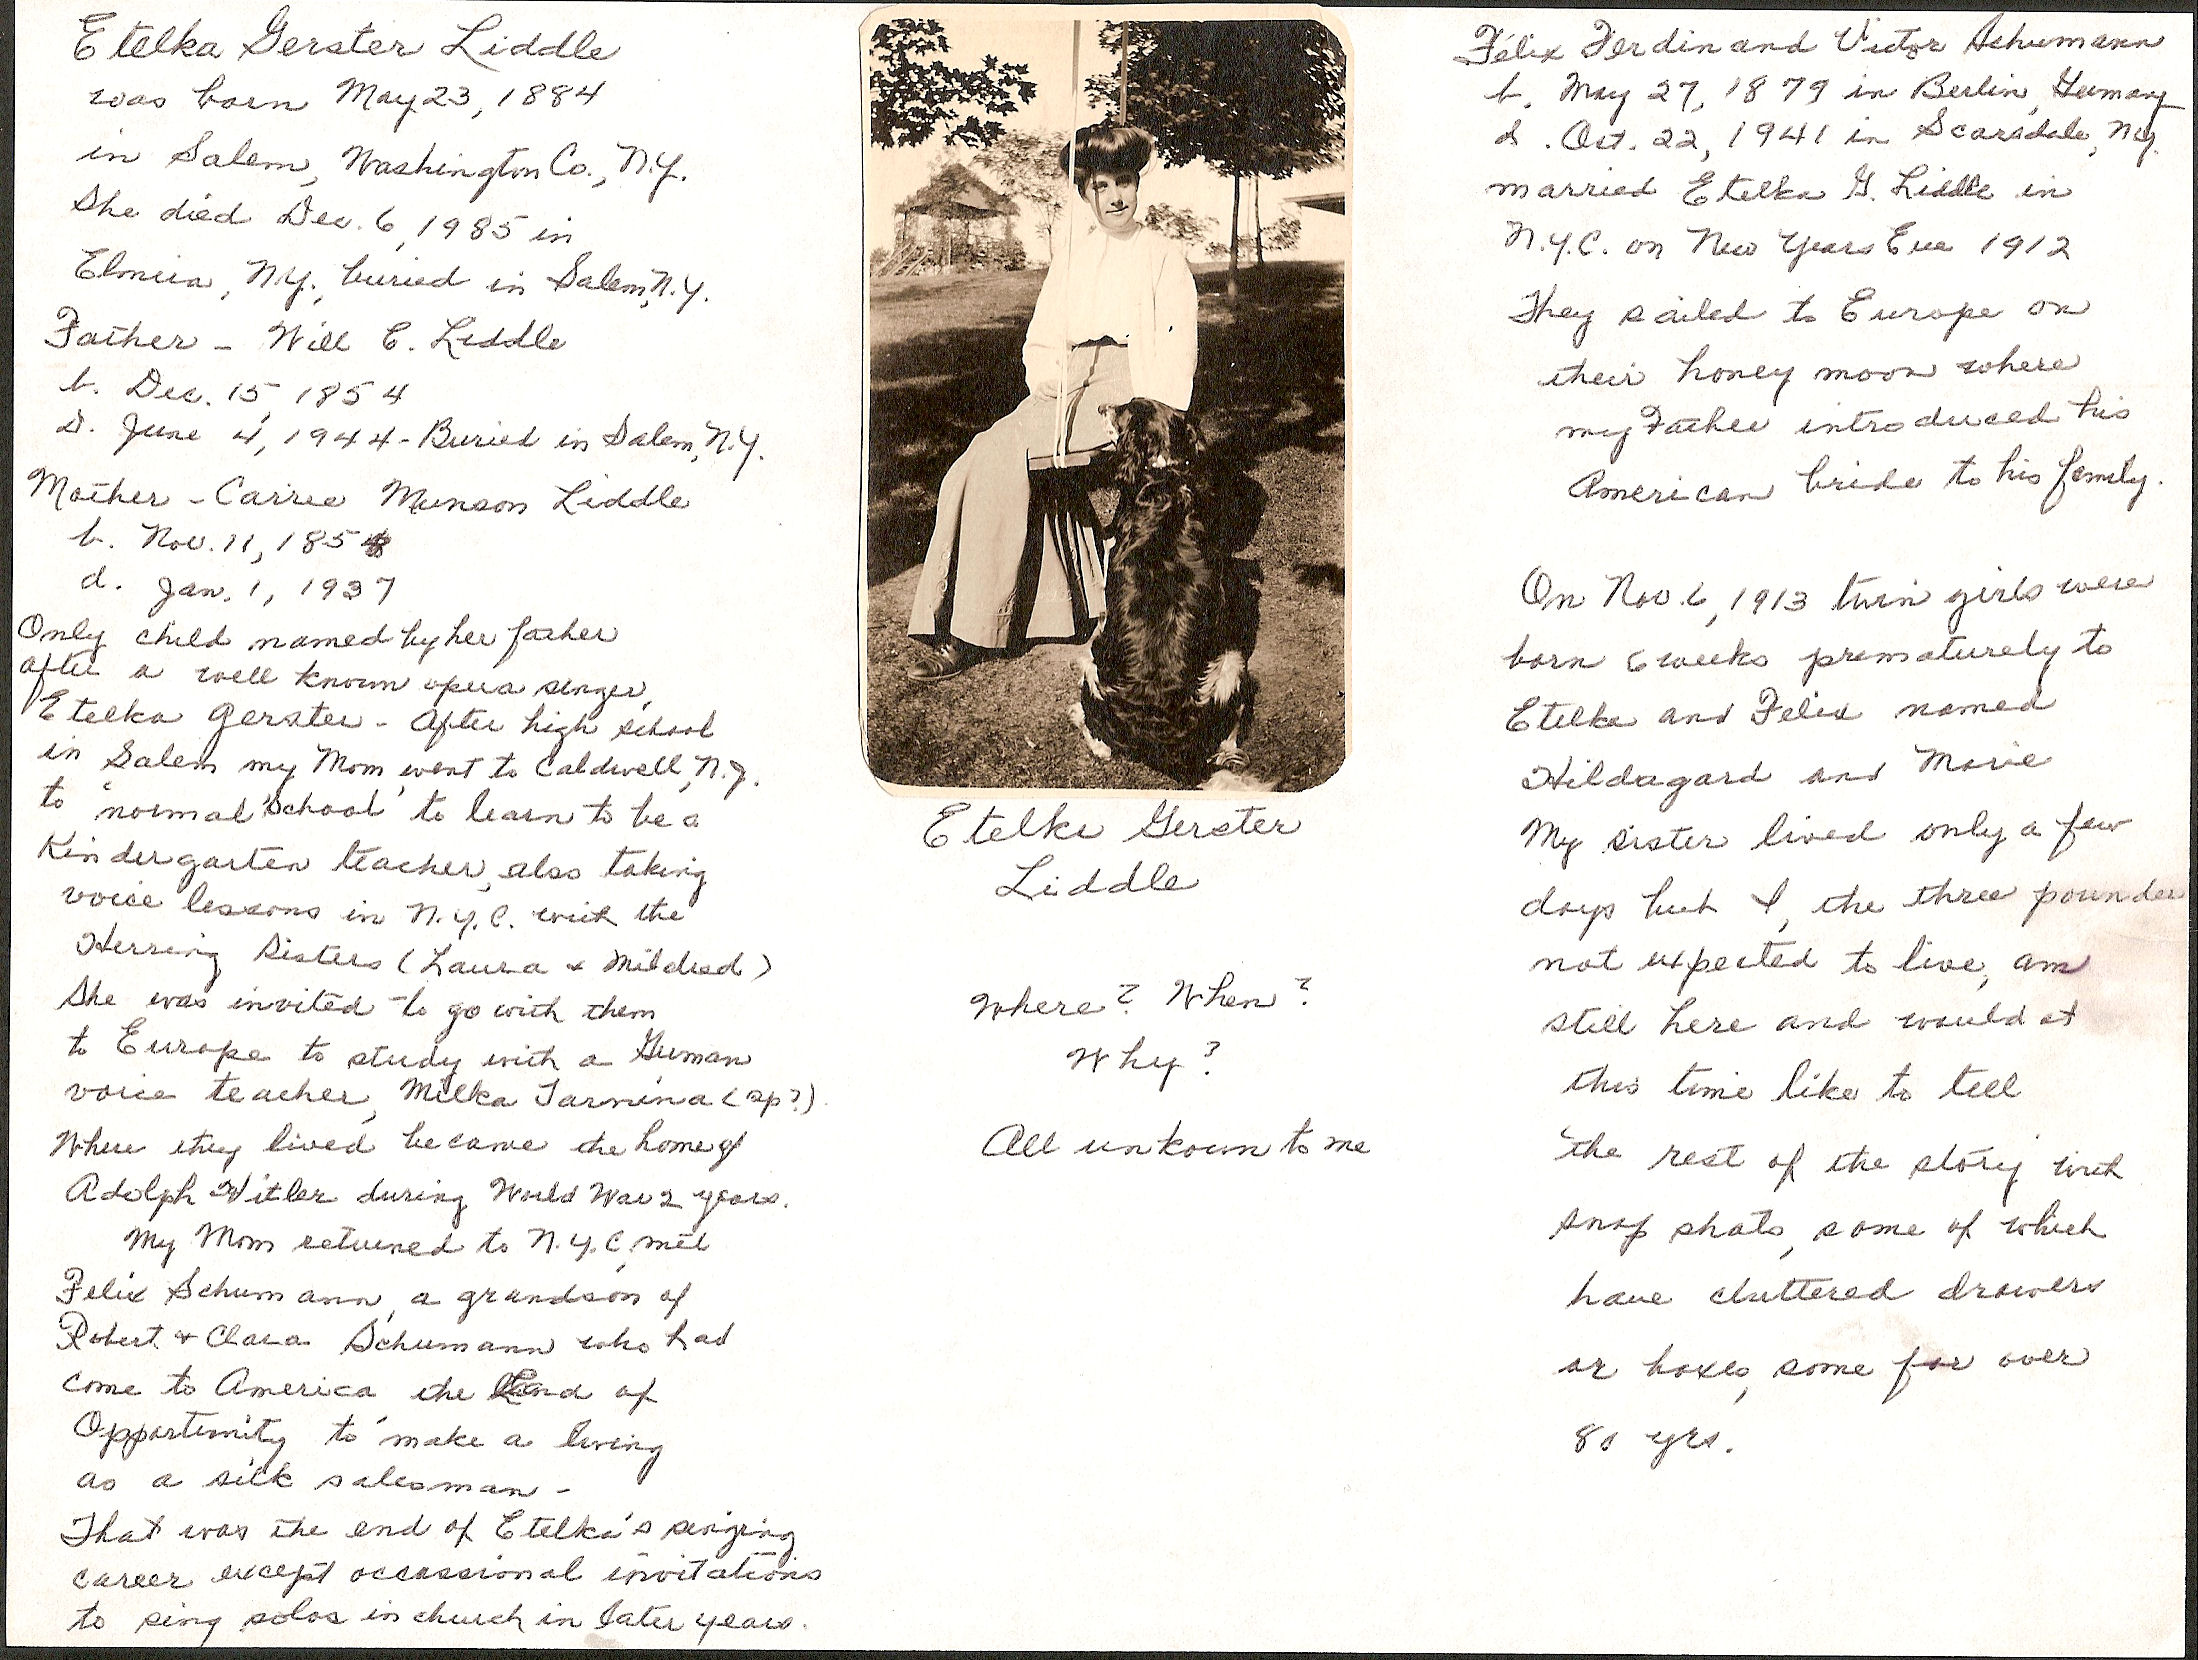 Etelka Gerster Liddle
was born May 23, 1884
in Salem, Washington Co., N.Y.
She died Dec. 6, 1985 in
Elmira, N.Y., buried in Salem, N.Y.
Father - Will C. Liddle
b. Dec. 15, 1854
d. June 4, 1944 - Buried in Salem, N.Y.
Mother - Carrie Munson Liddle
b. Nov. 11, 185
d. Jan. 1, 1937
Only child named by her father
after a well known opera singer,
Etelka Gerster - After high school
in Salem my Mom went to Caldwell, N.J.
to "normal school" to learn to be a
Kindergarten teacher, also taking
voice lessons in N.Y.C. with the
Herring Sisters (Laura & Mildred)
She was invited to go with them
to Europe to study with a German
voice teacher, Milka Tarnina (sp?).
Where they lived became the home of
Adolph Hitler during World War 2 years.
My Mom returned to N.Y.C, met
Felix Schumann, a grandson of
Robert & Clara Schumann who had
come to America, the Land of
Opportunity to make a living
as a silk salesman -
That was the end of Etelka's singing
career except occassional invitations
to sing solos in church in later years.
Etelka Gerster
Liddle
Where? When?
Why?
All unkown to me
Felix Ferdinand Victor Schumann
b. May 27, 1879 in Berlin, Germany
d. Oct. 22, 1941 in Scarsdale, N.Y.
married Etelka G. Liddle in
N.Y.C. on New Years Eve 1912
They sailed to Europe on
their honey moon where
my Father introduced his
American bride to his family.
On Nov. 6, 1913 twin girls were
born 6 weeks prematurely to
Etelka and Felix named
Hildagard and Marie
My sister lived only a few
days but I, the three pounder
not expected to live, am
still here and would at
this time like to tell
"the rest of the story" with
snap shots, some of which
have cluttered drawers
or boxes, some for over
80 yrs.